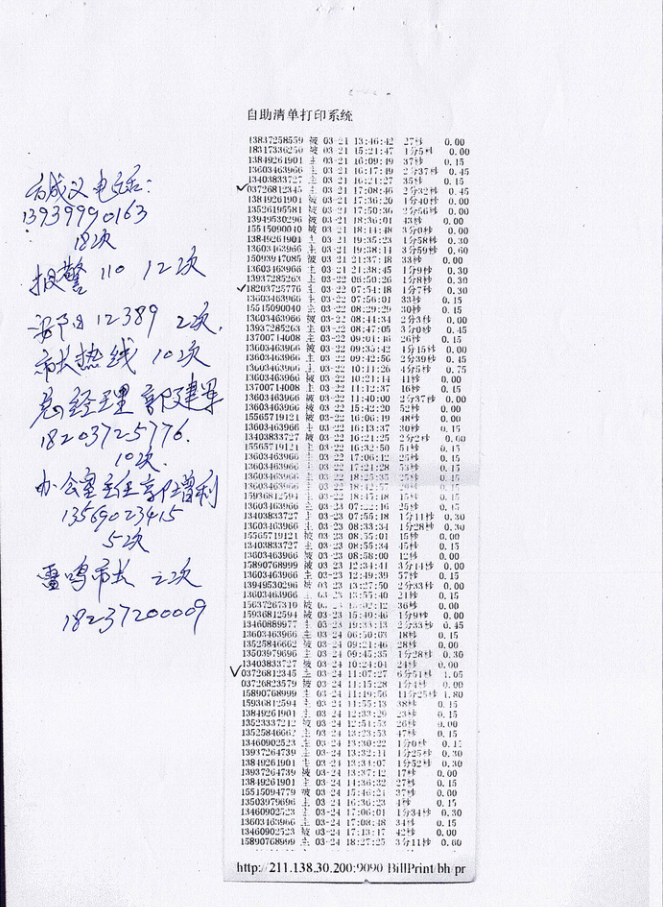 自助清单打印系统
13837258559 被 03-21 13:46:42 27秒 0.00
18317336250 被 03-21 15:21:47 1分5秒 0.00
13849261901 主 03-21 16:09:49 37秒 0.15
13603463966 主 03-21 16:17:49 2分37秒 0.45
13403833727 主 03-21 16:21:27 35秒 0.15
03726812345 主 03-21 17:08:46 2分32秒 0.45
13849261901 被 03-21 17:36:20 1分40秒 0.00
13526195581 被 03-21 17:50:36 2分56秒 0.00
13949530296 被 03-21 18:36:01 43秒 0.00
15515090040 被 03-21 18:44:48 3分0秒 0.00
13849261901 主 03-21 19:35:23 1分58秒 0.30
13603463966 主 03-21 19:38:14 3分59秒 0.60
15093947085 被 03-21 21:37:18 33秒 0.00
13603463966 主 03-21 21:38:45 1分9秒 0.30
13937285263 主 03-22 06:50:26 1分8秒 0.30
18203725776 主 03-22 07:54:18 1分7秒 0.30
13603463966 主 03-22 07:56:01 33秒 0.15
15515090040 主 03-22 08:29:29 30秒 0.15
13603463966 被 03-22 08:44:34 2分3秒 0.00
13937285263 主 03-22 08:47:05 3分0秒 0.45
13700714008 主 03-22 09:01:46 26秒 0.15
13603463966 被 03-22 09:35:42 1分15秒 0.00
13603463966 主 03-22 09:42:56 2分39秒 0.45
13603463966 主 03-22 10:11:26 4分5秒 0.75
13603463966 被 03-22 10:21:14 41秒 0.00
13700714008 主 03-22 11:12:37 16秒 0.15
13603463966 被 03-22 11:40:00 2分37秒 0.00
13603463966 被 03-22 15:42:20 52秒 0.00
15565719121 被 03-22 16:06:19 18秒 0.00
13603463966 主 03-22 16:13:37 30秒 0.15
13403833727 被 03-22 16:21:25 2分2秒 0.00
15565719121 主 03-22 16:32:50 51秒 0.15
13603463966 主 03-22 17:06:12 25秒 0.15
13603463966 主 03-22 17:21:28 53秒 0.15
13603463966 主 03-22 18:25:35 0.15
13603463966 主 03-22 18:42:57 0.15
15936812594 主 03-22 18:45:18 15秒 0.15
13603463966 主 03-23 07:22:16 25秒 0.15
13403833727 主 03-23 07:55:18 1分11秒 0.30
13603463966 主 03-23 08:33:34 1分28秒 0.30
15565719121 被 03-23 08:55:01 15秒 0.00
13403833727 主 03-23 08:55:34 45秒 0.15
13603463966 被 03-23 08:58:00 12秒 0.00
15890768999 被 03-23 12:34:41 3分14秒 0.00
13603463966 主 03-23 12:49:39 57秒 0.15
13949530296 被 03-23 13:27:50 2分33秒 0.00
13603463966 主 03-23 13:55:40 21秒 0.15
15637267310 被 36秒 0.00
15936812594 被 03-23 15:40:46 1分9秒 0.00
13460889977 主 03-23 19:33:13 2分33秒 0.45
13603463966 主 03-24 06:50:03 18秒 0.15
13525846662 被 03-24 09:21:46 28秒 0.00
13503979696 主 03-24 09:45:35 1分28秒 0.30
13403833727 被 03-24 10:24:04 24秒 0.00
03726812345 主 03-24 11:07:27 6分51秒 1.05
03726823579 被 03-24 11:15:28 1分4秒 0.00
15890768999 主 03-24 11:19:56 11分25秒 1.80
15936812594 主 03-24 11:55:13 38秒 0.15
13849261901 主 03-24 12:33:29 23秒 0.15
13523337212 被 03-24 12:51:53 26秒 0.00
13525846662 主 03-24 13:23:53 47秒 0.15
13460902523 主 03-24 13:30:22 1分0秒 0.15
13937264739 主 03-24 13:32:11 1分25秒 0.30
13849261901 主 03-24 13:34:07 1分52秒 0.30
13937264739 被 03-24 13:37:12 17秒 0.00
13849261901 主 03-24 14:36:32 27秒 0.15
15515094779 被 03-24 15:46:21 37秒 0.00
13503979696 主 03-24 16:36:23 4秒 0.15
13460902523 主 03-24 17:06:01 1分34秒 0.30
13603463966 主 03-24 17:08:48 34秒 0.15
13460902523 被 03-24 17:13:17 42秒 0.00
15890768999 主 03-24 18:27:25 3分11秒 0.60
http://211.138.30.200:9090 BillPrint/bh/pr
成义电话:
13939990163
18次
报警 110 12次
安阳 12389 2次.
市长热线 10次
总经理 郭建军
18203725776.
10次.
办公室主任郭增利
13569023415
5次
雷鸣市长 二次
18237200009